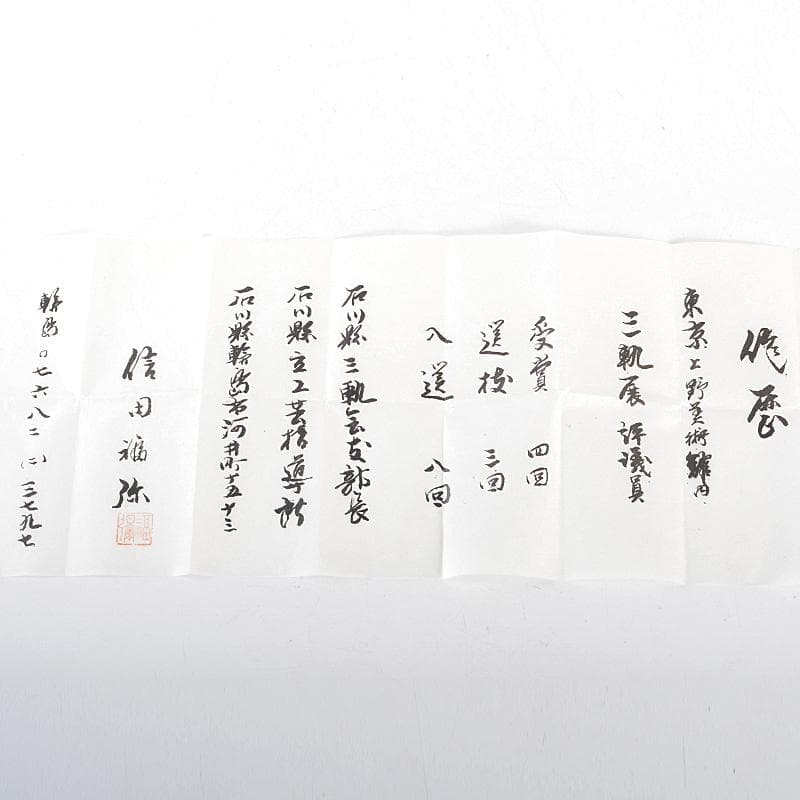 作歴
東京上野美術館内
三軌展 評議員
受賞 四回
選抜 三回
入選 八回
石川縣三軌会支部長
石川縣立工芸指導所
石川縣輪島市河井町十五ノ十三
信田福弥
輪島〇七六八二(二)三七九七